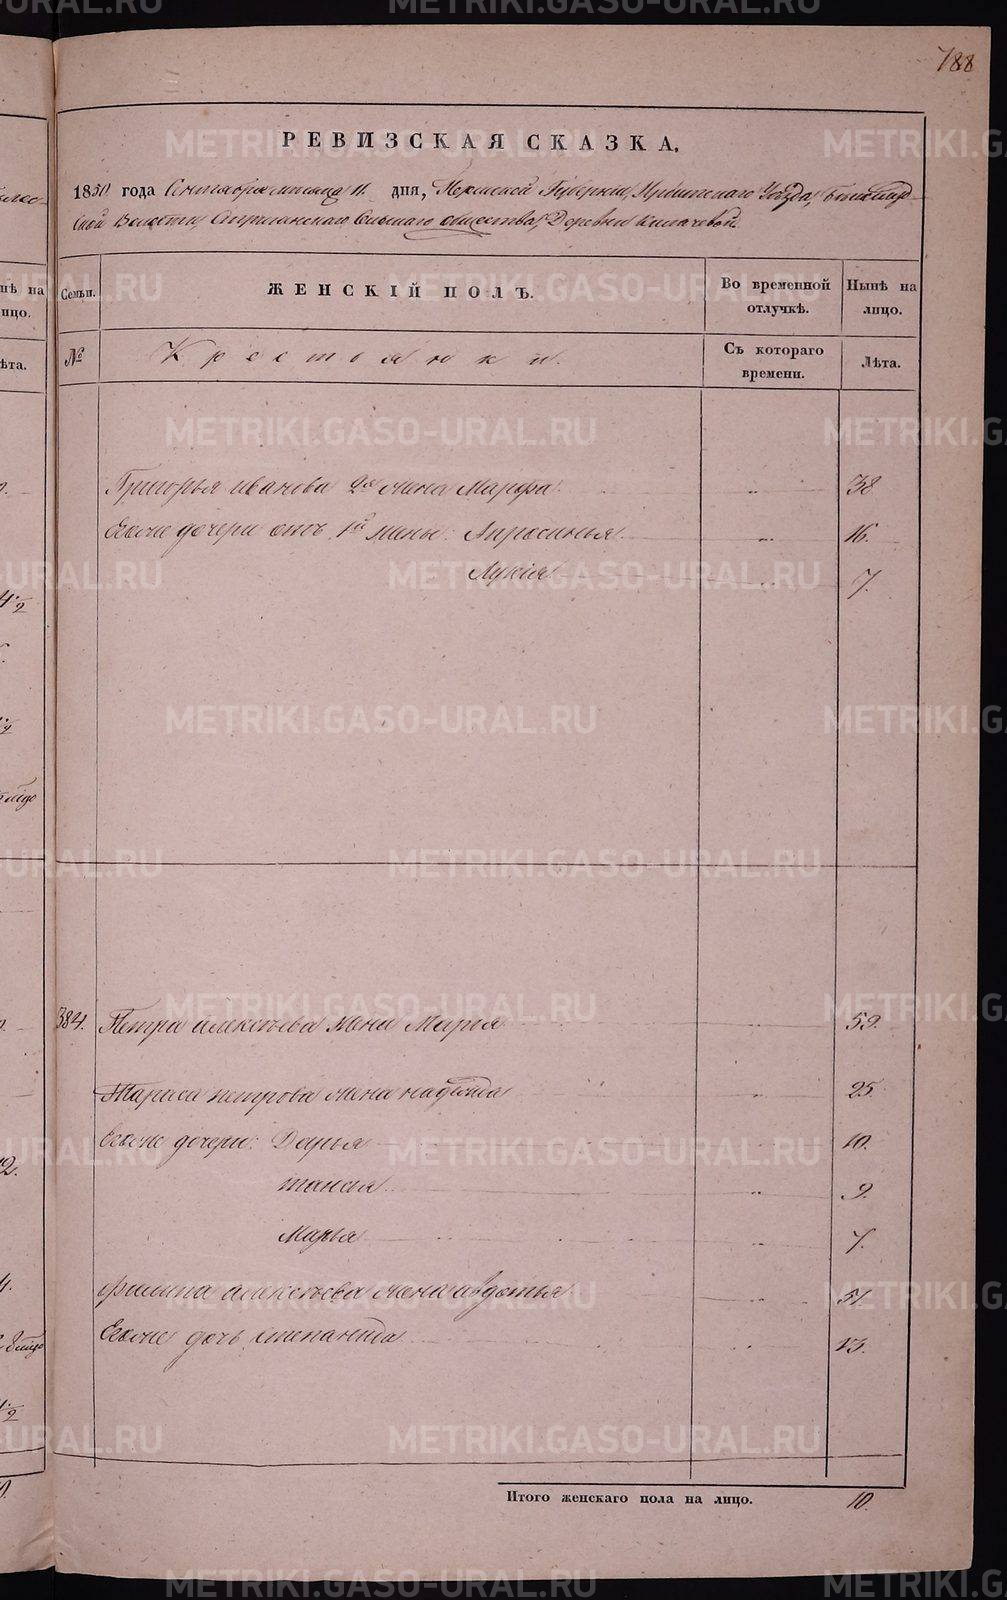 788
РЕВИЗСКАЯ СКАЗКА.
1850 года Сентября месяца 11 дня, Пермской Губернии, Ирбитскаго Уезда,
ской Волости, Сельскаго общества, Деревни
Семьи. ЖЕНСКІЙ ПОЛЪ. Во временной отлучкѣ. Нынѣ на лицо.
№ Крестьянки. Съ котораго времени. Лѣта.
Григорья иванова 2я жена Марфа " 38
Егоже дочери отъ 1й жены: Апросинья " 16.
Лукія " 7.
384. Петра алексѣева жена Марья " 59.
Тараса петрова жена надѣжда " 25.
Егоже дочери: Дарья " 10.
таисья " 9.
Марья " 7.
филипа алексѣева жена авдотья " 51.
Егоже дочь степанида " 13.
Итого женскаго пола на лицо. 10.
METRIKI.GASO-URAL.RU